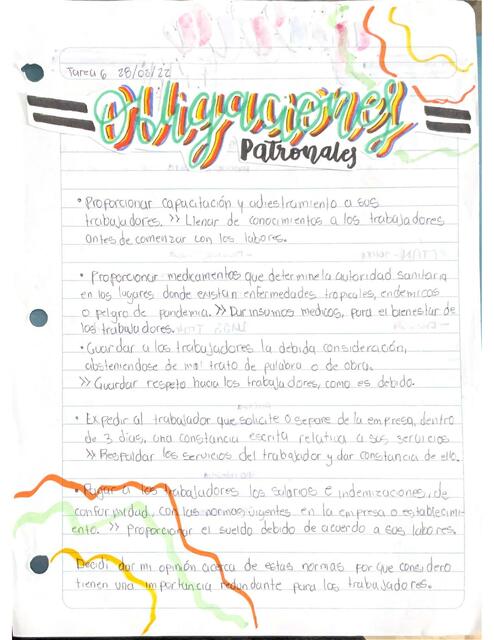 Tarea 6 28/02/22
Obligaciones
Patronales
• Proporcionar capacitación y adiestramiento a sus
trabajadores. >> Llenar de conocimientos a los trabajadores
antes de comenzar con los labores.
• Proporcionar medicamentos que determine la autoridad sanitaria
en los lugares donde existan enfermedades tropicales, endemicos
o peligro de pandemia. >> Dar insumos medicos, para el bienestar de
los trabajadores.
• Guardar a los trabajadores la debida consideración,
absteniendose de mal trato de palabra o de obra.
>> Guardar respeto hacia los trabajadores, como es debido.
• Expedir al trabajador que solicite o separe de la empresa, dentro
de 3 días, una constancia escrita relativa a sus servicios
>> Respaldar los servicios del trabajador y dar constancia de ello.
• Pagar a los trabajadores los salarios e indemnizaciones, de
conformidad, con las normas vigentes en la empresa o establecimi-
ento. >> Proporcionar el sueldo debido de acuerdo a sus labores.
Decidí dar mi opinión acerca de estas normas por que considero
tienen una importancia redundante para los trabajadores.